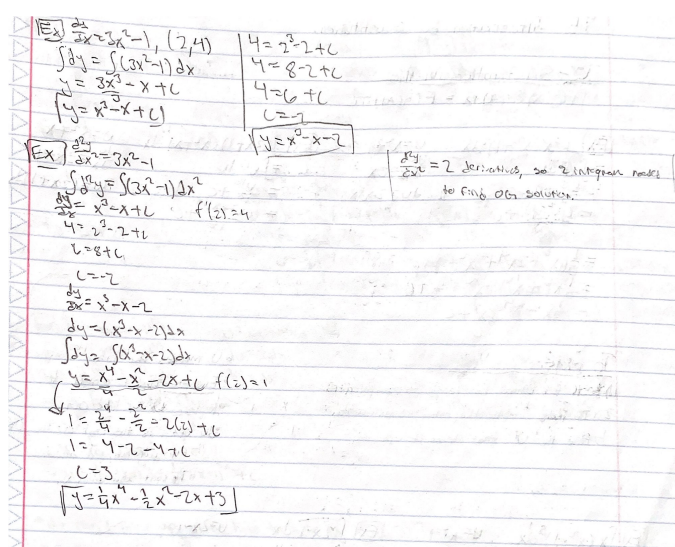 Ex dy/dx = 3x²-1, (2,4)
∫dy = ∫(3x²-1)dx
y = 3x³/3 - x + C
y = x³-x+C
4 = 2³-2+C
4 = 8-2+C
4 = 6+C
C = -2
y = x³-x-2
Ex d²y/dx² = 3x²-1
∫d²y = ∫(3x²-1)dx²
dy/dx = x³-x+C f'(2)=4
4 = 2³-2+C
C = 8+C
C = -2
dy/dx = x³-x-2
dy = (x³-x-2)dx
∫dy = ∫(x³-x-2)dx
y = x⁴/4 - x²/2 - 2x + C f(2)=1
1 = 2⁴/4 - 2²/2 - 2(2) + C
1 = 4-2-4+C
C = 3
y = 1/4x⁴ - 1/2x² - 2x + 3
d²y/dx² = 2 derivatives, so 2 integrals needed
to find OG solution.